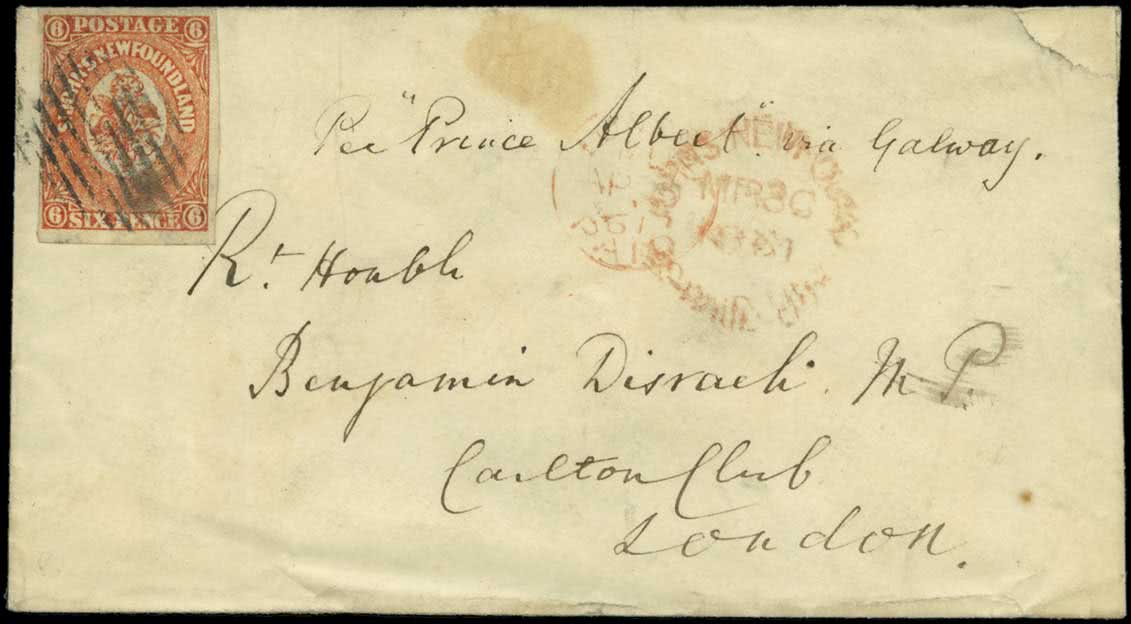 6 POSTAGE 6
ST. JOHN'S NEWFOUNDLAND
6 SIX PENCE 6
Per "Prince Albert" via Galway.
MR 30
Rt Honble
Benjamin Disraeli. M P.
Carlton Club
London.